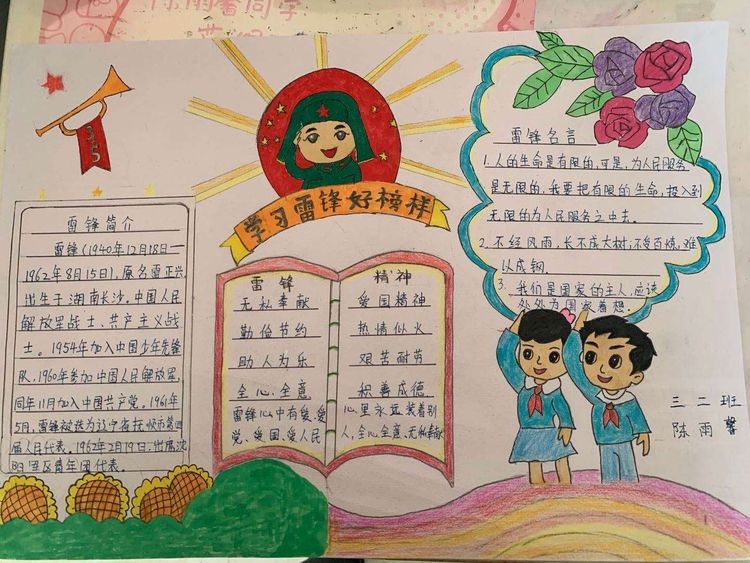 陈雨馨同学
3
5
学习雷锋好榜样
雷锋简介
雷锋(1940年12月18日—
1962年8月15日),原名雷正兴
出生于湖南长沙,中国人民
解放军战士、共产主义战
士。1954年加入中国少年先锋
队,1960年参加中国人民解放军,
同年11月加入中国共产党。1961年
5月,雷锋被选为辽宁省抚顺市第四
届人民代表。1962年2月19日,出席沈
阳军区青年团代表.
雷锋
无私奉献
勤俭节约
助人为乐
全心、全意
雷锋心中有爱、爱
党、爱国、爱人民
精神
爱国精神
热情似火
艰苦耐劳
积善成德
心里永远装着别
人,全心全意、无私奉献
雷锋名言
1.人的生命是有限的,可是,为人民服务
是无限的,我要把有限的生命,投入到
无限的为人民服务之中去。
2.不经风雨,长不成大树;不受百炼,难
以成钢。
3.我们是国家的主人,应该
处处为国家着想。
三二班
陈雨馨